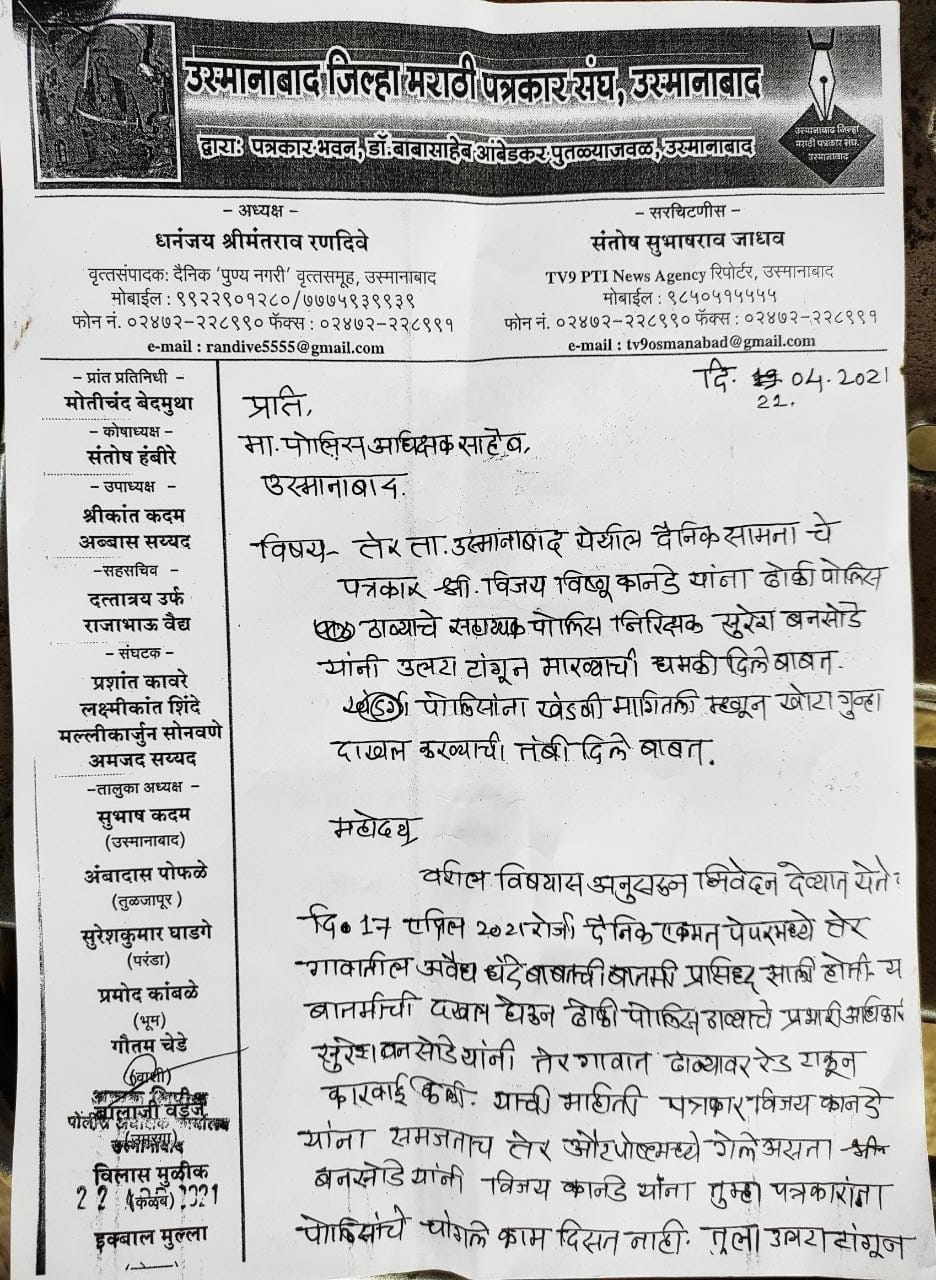 उस्मानाबाद जिल्हा मराठी पत्रकार संघ, उस्मानाबाद
द्वारा: पत्रकार भवन, डॉ. बाबासाहेब आंबेडकर पुतळ्याजवळ, उस्मानाबाद
उस्मानाबाद जिल्हा
मराठी पत्रकार संघ.
उस्मानाबाद
– अध्यक्ष –
धनंजय श्रीमंतराव रणदिवे
वृत्तसंपादक: दैनिक 'पुण्य नगरी' वृत्तसमूह, उस्मानाबाद
मोबाईल : ९९२२९०१२८०/७७७५९३९९३९
फोन नं. ०२४७२-२२८९९० फॅक्स : ०२४७२-२२८९९१
e-mail : randive5555@gmail.com
– सरचिटणीस –
संतोष सुभाषराव जाधव
TV9 PTI News Agency रिपोर्टर, उस्मानाबाद
मोबाईल : ९८५०५१५५५५
फोन नं. ०२४७२-२२८९९० फॅक्स : ०२४७२-२२८९९१
e-mail : tv9osmanabad@gmail.com
– प्रांत प्रतिनिधी –
मोतीचंद बेदमुथा
– कोषाध्यक्ष –
संतोष हंबीरे
– उपाध्यक्ष –
श्रीकांत कदम
अब्बास सय्यद
–सहसचिव –
दत्तात्रय उर्फ
राजाभाऊ वैद्य
– संघटक –
प्रशांत कावरे
लक्ष्मीकांत शिंदे
मल्लीकार्जुन सोनवणे
अमजद सय्यद
–तालुका अध्यक्ष –
सुभाष कदम
(उस्मानाबाद)
अंबादास पोफळे
(तुळजापूर)
सुरेशकुमार घाडगे
(परंडा)
प्रमोद कांबळे
(भूम)
गौतम चेडे
(वाशी)
बालाजी वडजे
उस्मानाबाद
विलास मुळीक
22 2021
इक्बाल मुल्ला
दि. 04.2021
22.
प्रति,
मा. पोलिस अधिक्षक साहेब,
उस्मानाबाद.
विषय- तेर ता. उस्मानाबाद येथील दैनिक सामना चे
पत्रकार श्री. विजय विष्णू कानडे यांना ढोकी पोलिस
ठाण्याचे सहाय्यक पोलिस निरिक्षक सुरेश बनसोडे
यांनी उलटा टांगून मारण्याची धमकी दिले बाबत.
पोलिसांना खंडणी मागितली म्हणून खोटा गुन्हा
दाखल करण्याची तंबी दिले बाबत.
महोदय,
वरील विषयास अनुसरून निवेदन देण्यात येते
दि. 17 एप्रिल 2021 रोजी दैनिक एकमत पेपरमध्ये तेर
गावातील अवैध धंदे बाबतची बातमी प्रसिध्द झाली होती. य
बातमीची दखल घेऊन ढोकी पोलिस ठाण्याचे प्रभारी अधिकारी
सुरेश बनसोडे यांनी तेर गावात ढाब्यावर रेड टाकून
कारवाई केली. याची माहीती पत्रकार विजय कानडे
यांना समजताच तेर औटपोष्टमध्ये गेले असता श्री
बनसोडे यांनी विजय कानडे यांना तुम्हा पत्रकारांना
पोलिसांचे चांगले काम दिसत नाही. तूला उलटा टांगून